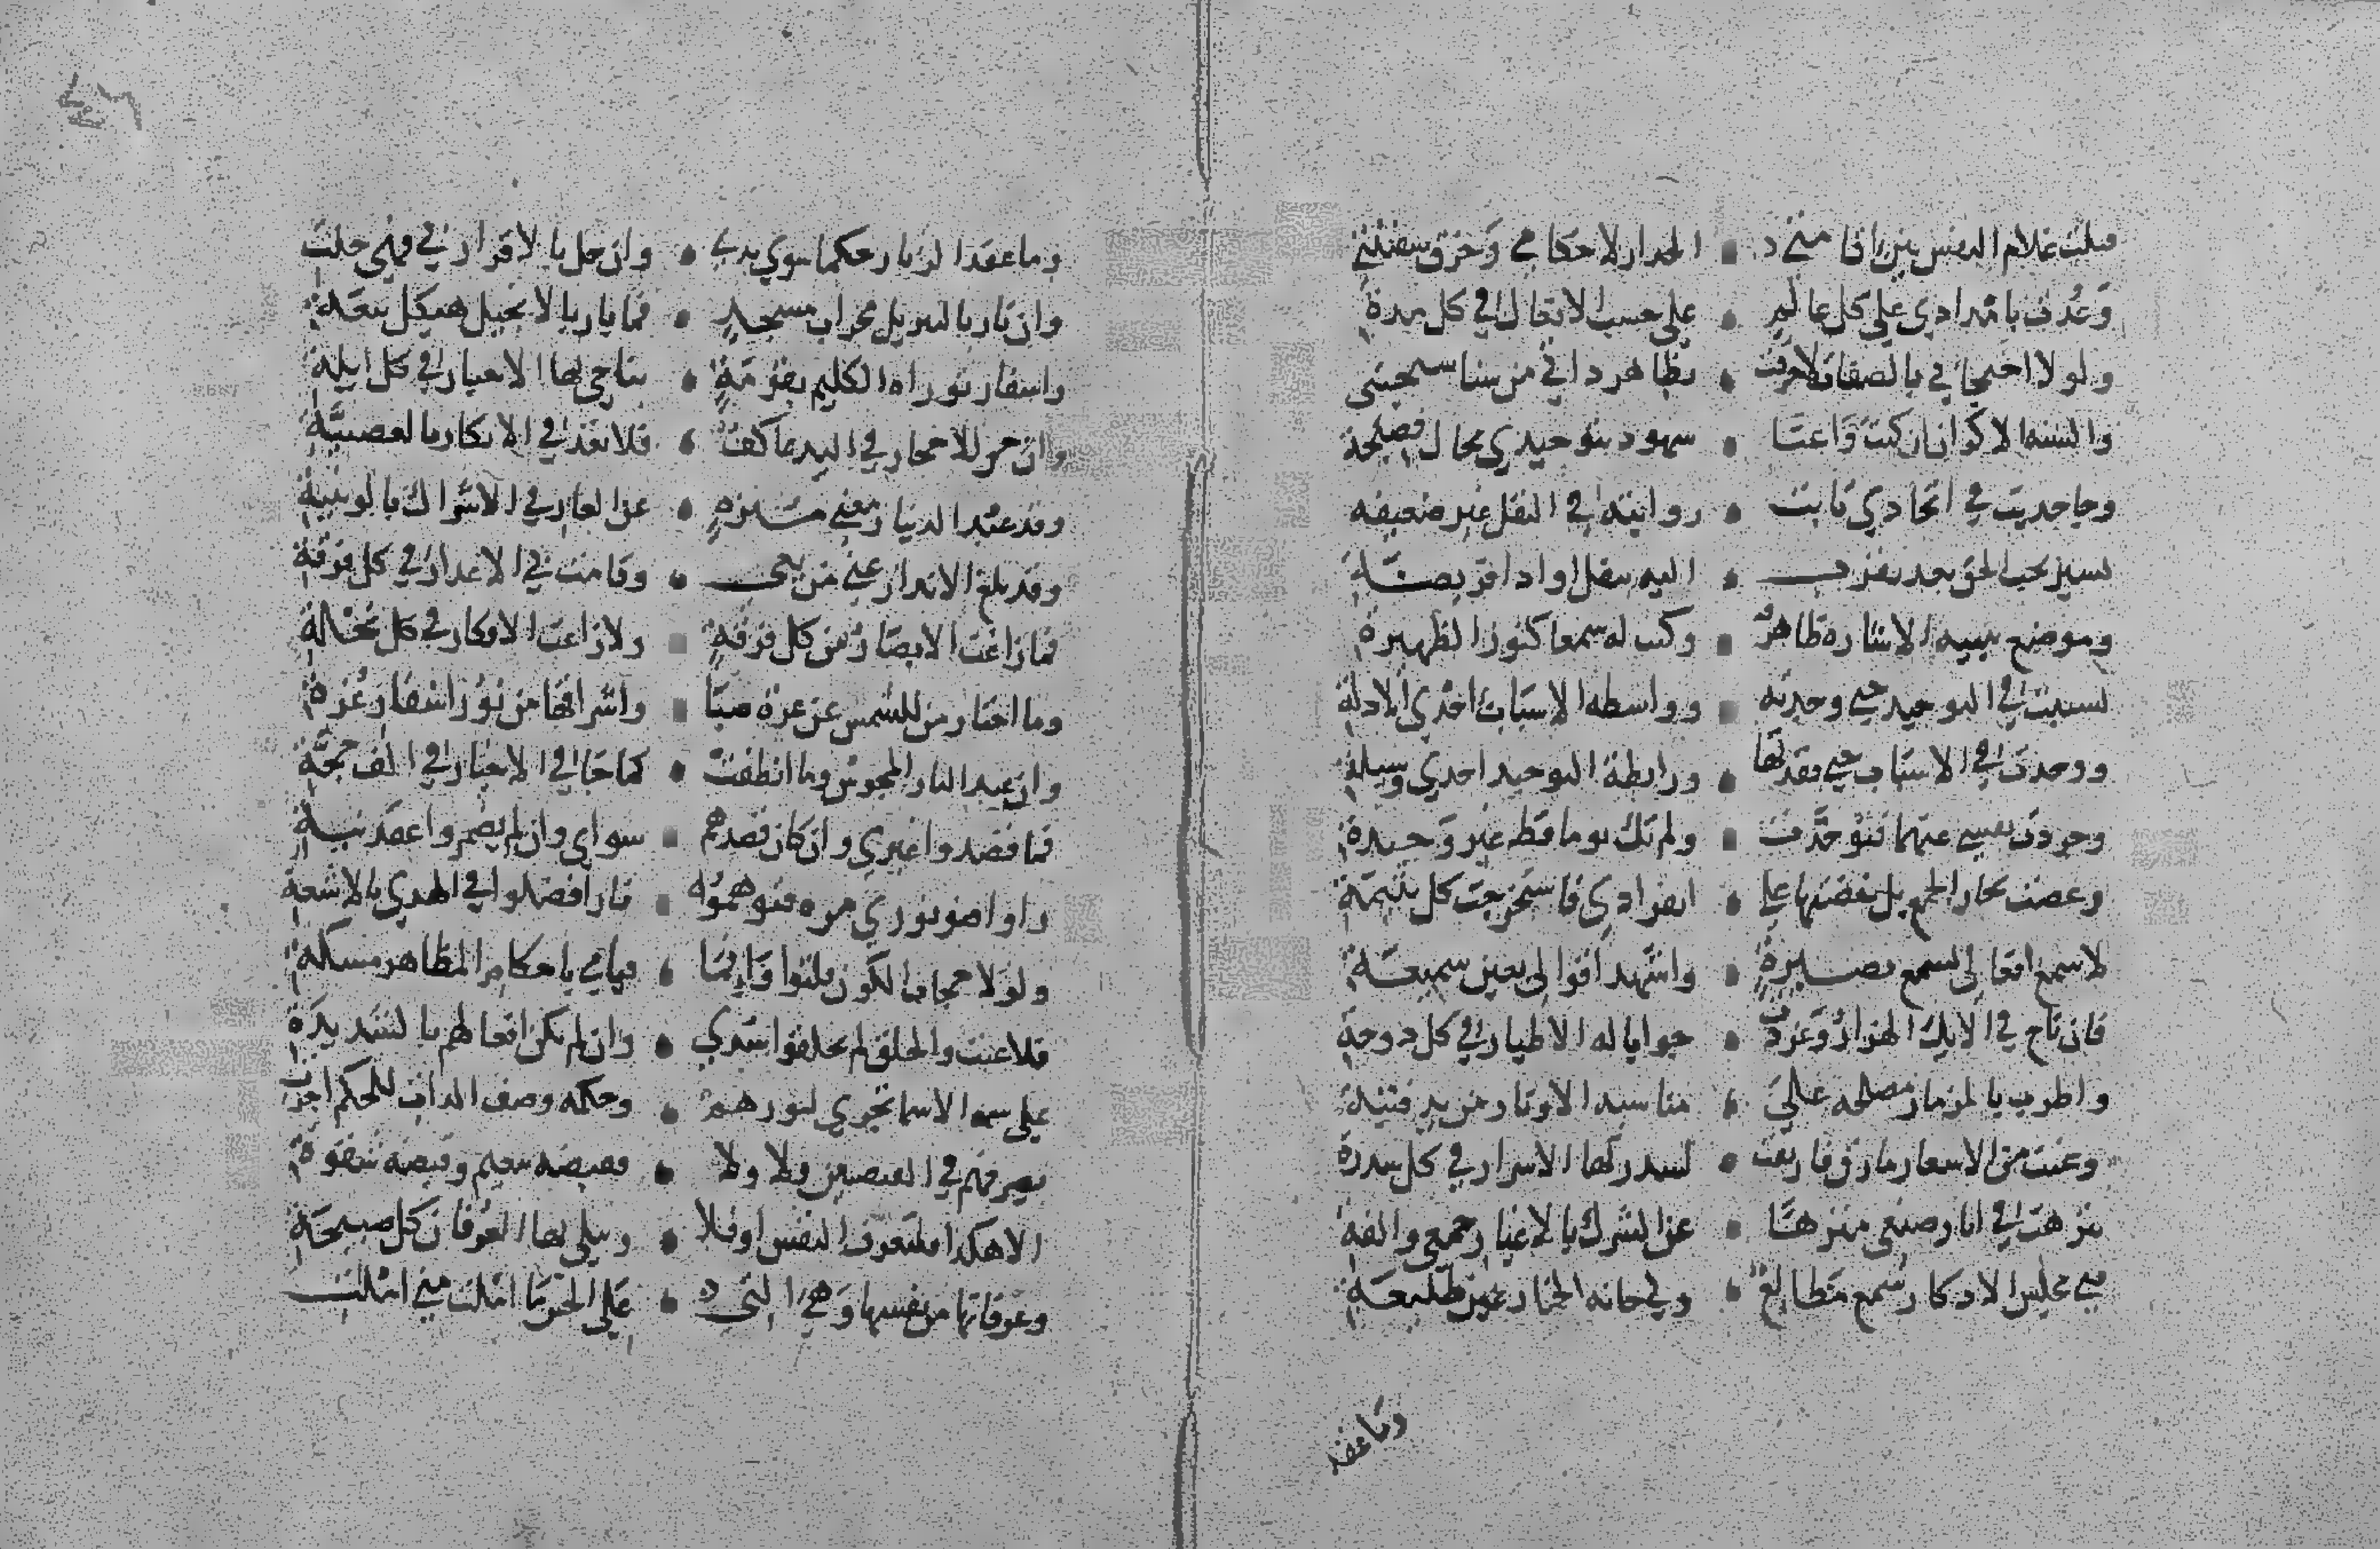 قتلت غلام النفس بين اقامتي د • الجدار لاحكامي وخرق سفينتي
وعدت بامدادي على كل عالم • على حسب الافعال في كل مدة
ولولا احتجابي بالصفات لاحرقت • مظاهر ذاتي من سنا سبحتي
والسنة الاكوان ان كنت واعيا • شهود بتوحيدي بحال فصيحة
وجا حديث في اتحادي ثابت • روايته في النقل غير ضعيفه
يشير بحب الحق بعد تقرب • اليه بنفل او اداء فريضة
وموضع تنبيه الاشارة ظاهر • وكنت له سمعا كنور الظهيرة
تسببت في التوحيد حتى وجدته • وواسطه الاسباب احدى الادلة
ووحدت في الاسباب حتى فقدتها • ورابطة التوحيد احدى وسيلة
وجردت نفسي عنهما فتوحدت • ولم تك يوما قط غير وحيدة
وغصت بحار الجمع بل خضتها على • انفرادي فاستخرجت كل يتيمة
لاسمع افعالي بسمع بصيرة • واشهد اقوالي بعين سميعة
فان ناح في الايك الهزار وغردت • جوابا له الاطيار في كل دوحة
واطرب بالمزمار مصلحه على • مناسبة الاوتار من يد قينة
وغنت من الاشعار ما رق فارتقت • لسدرتها الاسرار في كل سدرة
تنزهت في اثار صنعي منزها • عن الشرك بالاغيار جمعي والفتي
فبي مجلس الاذكار سمع مطالع • ولي حانة الخمار عين طليعة
وما عقد
وما عقد الزنار حكما سوى يدي • وان حل بالاقرار بي فهي حلت
وان نار بالتنزيل محراب مسجد • فما بار بالانجيل هيكل بيعة
واسفار توراة الكليم لقومه • يناجي بها الاحبار في كل ليلة
وان خر للاحجار في البد عاكف • فلا تعد في الانكار بالعصبية
وقد عبد الدينار معنى منزه • عن العار في الاشراك بالوثنية
وقد بلغ الانذار عني من بغى • وقامت بي الاعذار في كل فرقة
فما زاغت الابصار من كل فرقة • ولا زاغت الافكار في كل نحلة
وما احتار من للشمس عن غرة صبا • واشراقها من نور اسفار غرة
وان عبد النار المجوس وما انطفت • كما جا في الاخبار في الف حجة
فما قصدوا غيري وان كان قصدهم • سواي وان لم يضمروا عقد نية
راوا ضو نوري مرة فتوهموه • نارا فضلوا في الهدى بالاشعة
ولولا حجاب الكون قلت وانما • قيامي باحكام المظاهر مسكة
فلا عبث والخلق لم يخلقوا سدى • وان لم تكن افعالهم بالسديدة
على سمة الاسما تجري امورهم • وحكمة وصف الذات للحكم اجرت
يصرفهم في القبضتين ولا ولا • فقبضة تنعيم وقبضة شقوة
الا هكذا فلتعرف النفس او فلا • ويتلى بها الفرقان كل صبيحة
وعرفانها من نفسها وهي التي • على الحس ما املت مني املت